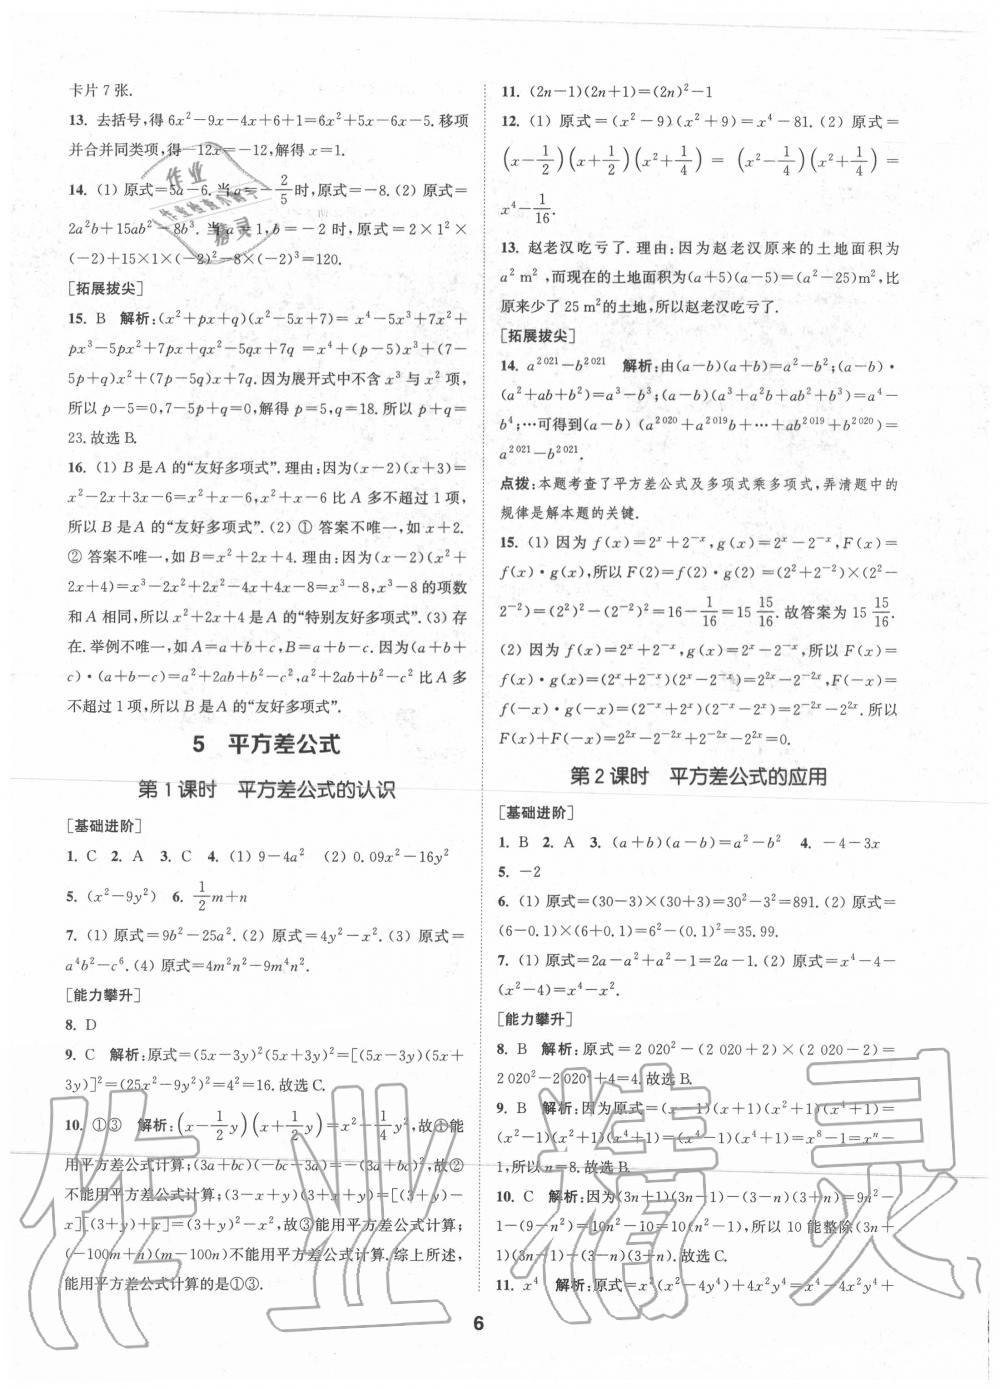 卡片 7 张.
13. 去括号,得 6x²-9x-4x+6+1=6x²+5x-6x-5. 移项
并合并同类项,得-12x=-12,解得 x=1.
14. (1) 原式=5a-6. 当 a=-2/5时,原式=-8. (2) 原式=
2a²b+15ab²-8b³. 当 a=1,b=-2 时,原式=2×1²×
(-2)+15×1×(-2)²-8×(-2)³=120.
[拓展拔尖]
15. B 解析:(x²+px+q)(x²-5x+7)= x⁴-5x³+7x²+
px³-5px²+7px+qx²-5qx+7q =x⁴+(p-5)x³+(7-
5p+q)x²+(7p-5q)x+7q. 因为展开式中不含 x³ 与 x² 项,
所以 p-5=0,7-5p+q=0,解得 p=5,q=18. 所以 p+q=
23. 故选 B.
16. (1) B 是 A 的“友好多项式”. 理由:因为(x-2)(x+3)=
x²-2x+3x-6=x²+x-6,x²+x-6 比 A 多不超过 1 项,
所以 B 是A 的“友好多项式”. (2) ① 答案不唯一,如 x+2.
② 答案不唯一,如 B=x²+2x+4. 理由:因为(x-2)(x²+
2x+4)=x³-2x²+2x²-4x+4x-8=x³-8,x³-8 的项数
和 A 相同,所以 x²+2x+4 是A 的“特别友好多项式”. (3) 存
在. 举例不唯一,如 A=a+b+c,B=a+b-c. 因为(a+b+
c)·(a+b-c)=a²+2ab+b²-c²,a²+2ab+b²-c² 比 A 多
不超过 1 项,所以 B 是A 的“友好多项式”.
5 平方差公式
第 1 课时 平方差公式的认识
[基础进阶]
1. C 2. A 3. C 4. (1) 9-4a² (2) 0.09x²-16y²
5. (x²-9y²) 6. 1/2m+n
7. (1) 原式=9b²-25a². (2) 原式=4y²-x². (3) 原式=
a⁴b²-c⁶. (4) 原式=4m²n²-9m⁴n².
[能力攀升]
8. D
9. C 解析:原式=(5x-3y)²(5x+3y)²=[(5x-3y)(5x+
3y)]²=(25x²-9y²)²=4²=16. 故选 C.
10. ①③ 解析:(x-1/2y)(x+1/2y)=x²-1/4y²,故①能
用平方差公式计算;(3a+bc)(-bc-3a)=-(3a+bc)²,故②
不能用平方差公式计算;(3-x+y)(3+x+y)=[(3+y)-
x][(3+y)+x]=(3+y)²-x²,故③能用平方差公式计算;
(-100m+n)(m-100n)不能用平方差公式计算. 综上所述,
能用平方差公式计算的是①③.
11. (2n-1)(2n+1)=(2n)²-1
12. (1) 原式=(x²-9)(x²+9)=x⁴-81. (2) 原式=
(x-1/2)(x+1/2)(x²+1/4) = (x²-1/4)(x²+1/4) =
x⁴-1/16.
13. 赵老汉吃亏了. 理由:因为赵老汉原来的土地面积为
a² m²,而现在的土地面积为(a+5)(a-5)=(a²-25)m²,比
原来少了 25 m²的土地,所以赵老汉吃亏了.
[拓展拔尖]
14. a²⁰²¹-b²⁰²¹ 解析:由(a-b)(a+b)=a²-b²;(a-b)·
(a²+ab+b²)=a³-b³;(a-b)(a³+a²b+ab²+b³)=a⁴-
b⁴;…可得到(a-b) (a²⁰²⁰+a²⁰¹⁹b+…+ab²⁰¹⁹+b²⁰²⁰)=
a²⁰²¹-b²⁰²¹.
点拨:本题考查了平方差公式及多项式乘多项式,弄清题中的
规律是解本题的关键.
15. (1) 因为 f(x)=2ˣ+2⁻ˣ,g(x)=2ˣ-2⁻ˣ,F(x)=
f(x)·g(x),所以 F(2)=f(2)·g(2)=(2²+2⁻²)×(2²-
2⁻²)=(2²)²-(2⁻²)²=16-1/16=15 15/16. 故答案为 15 15/16.
(2) 因为 f(x)=2ˣ+2⁻ˣ,g(x)=2ˣ-2⁻ˣ,所以 F(x)=
f(x)·g(x)=(2ˣ+2⁻ˣ)(2ˣ-2⁻ˣ)=2²ˣ-2⁻²ˣ,F(-x)=
f(-x)·g(-x)=(2⁻ˣ+2ˣ)(2⁻ˣ-2ˣ)=2⁻²ˣ-2²ˣ. 所以
F(x)+F(-x)=2²ˣ-2⁻²ˣ+2⁻²ˣ-2²ˣ=0.
第 2 课时 平方差公式的应用
[基础进阶]
1. B 2. A 3. (a+b)(a-b)=a²-b² 4. -4-3x
5. -2
6. (1) 原式=(30-3)×(30+3)=30²-3²=891. (2) 原式=
(6-0.1)×(6+0.1)=6²-(0.1)²=35.99.
7. (1) 原式=2a-a²+a²-1=2a-1. (2) 原式=x⁴-4-
(x²-4)=x⁴-x².
[能力攀升]
8. B 解析:原式=2 020²-(2 020+2)×(2 020-2)=
2 020²-2 020²+4=4. 故选 B.
9. B 解析:因为原式=(x-1)(x+1)(x²+1)(x⁴+1)=
(x²-1)(x²+1)(x⁴+1)=(x⁴-1)(x⁴+1)=x⁸-1=xⁿ-
1,所以 n=8. 故选 B.
10. C 解析:因为(3n+1)(3n-1)-(3-n)(3+n)=9n²-
1-(9-n²)=10n²-10=10(n²-1),所以 10 能整除(3n+
1)(3n-1)-(3-n)(3+n). 故选 C.
11. x⁴ 解析:原式=x²(x²-4y⁴)+4x²y⁴=x⁴-4x²y⁴+
6
作业精灵